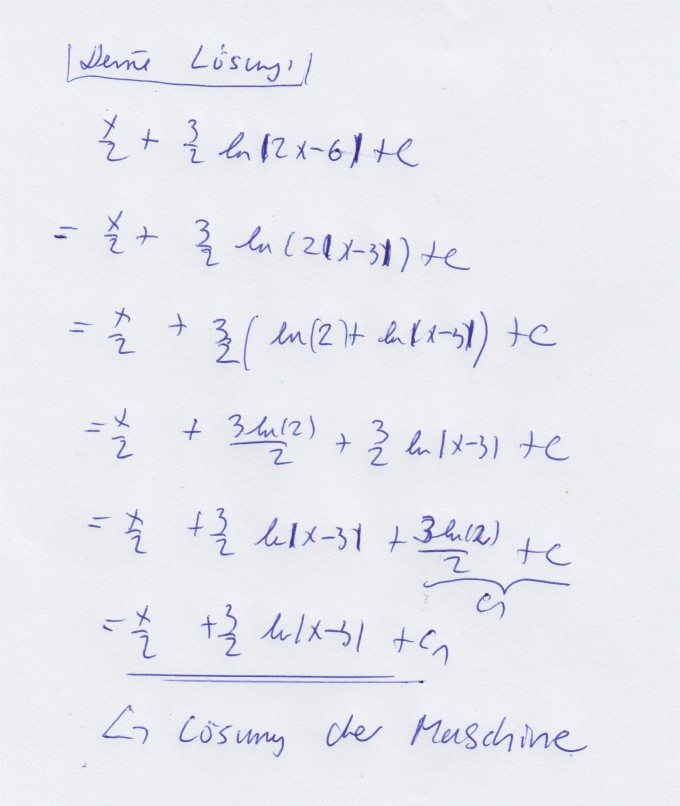 Deine Lösung:
x/2 + 3/2 ln|2x-6| + C
= x/2 + 3/2 ln(2|x-3|) + C
= x/2 + 3/2 ( ln(2) + ln|x-3| ) + C
= x/2 + 3ln(2)/2 + 3/2 ln|x-3| + C
= x/2 + 3/2 ln|x-3| + 3ln(2)/2 + C
C₁
= x/2 + 3/2 ln|x-3| + C₁
↳ Lösung der Maschine